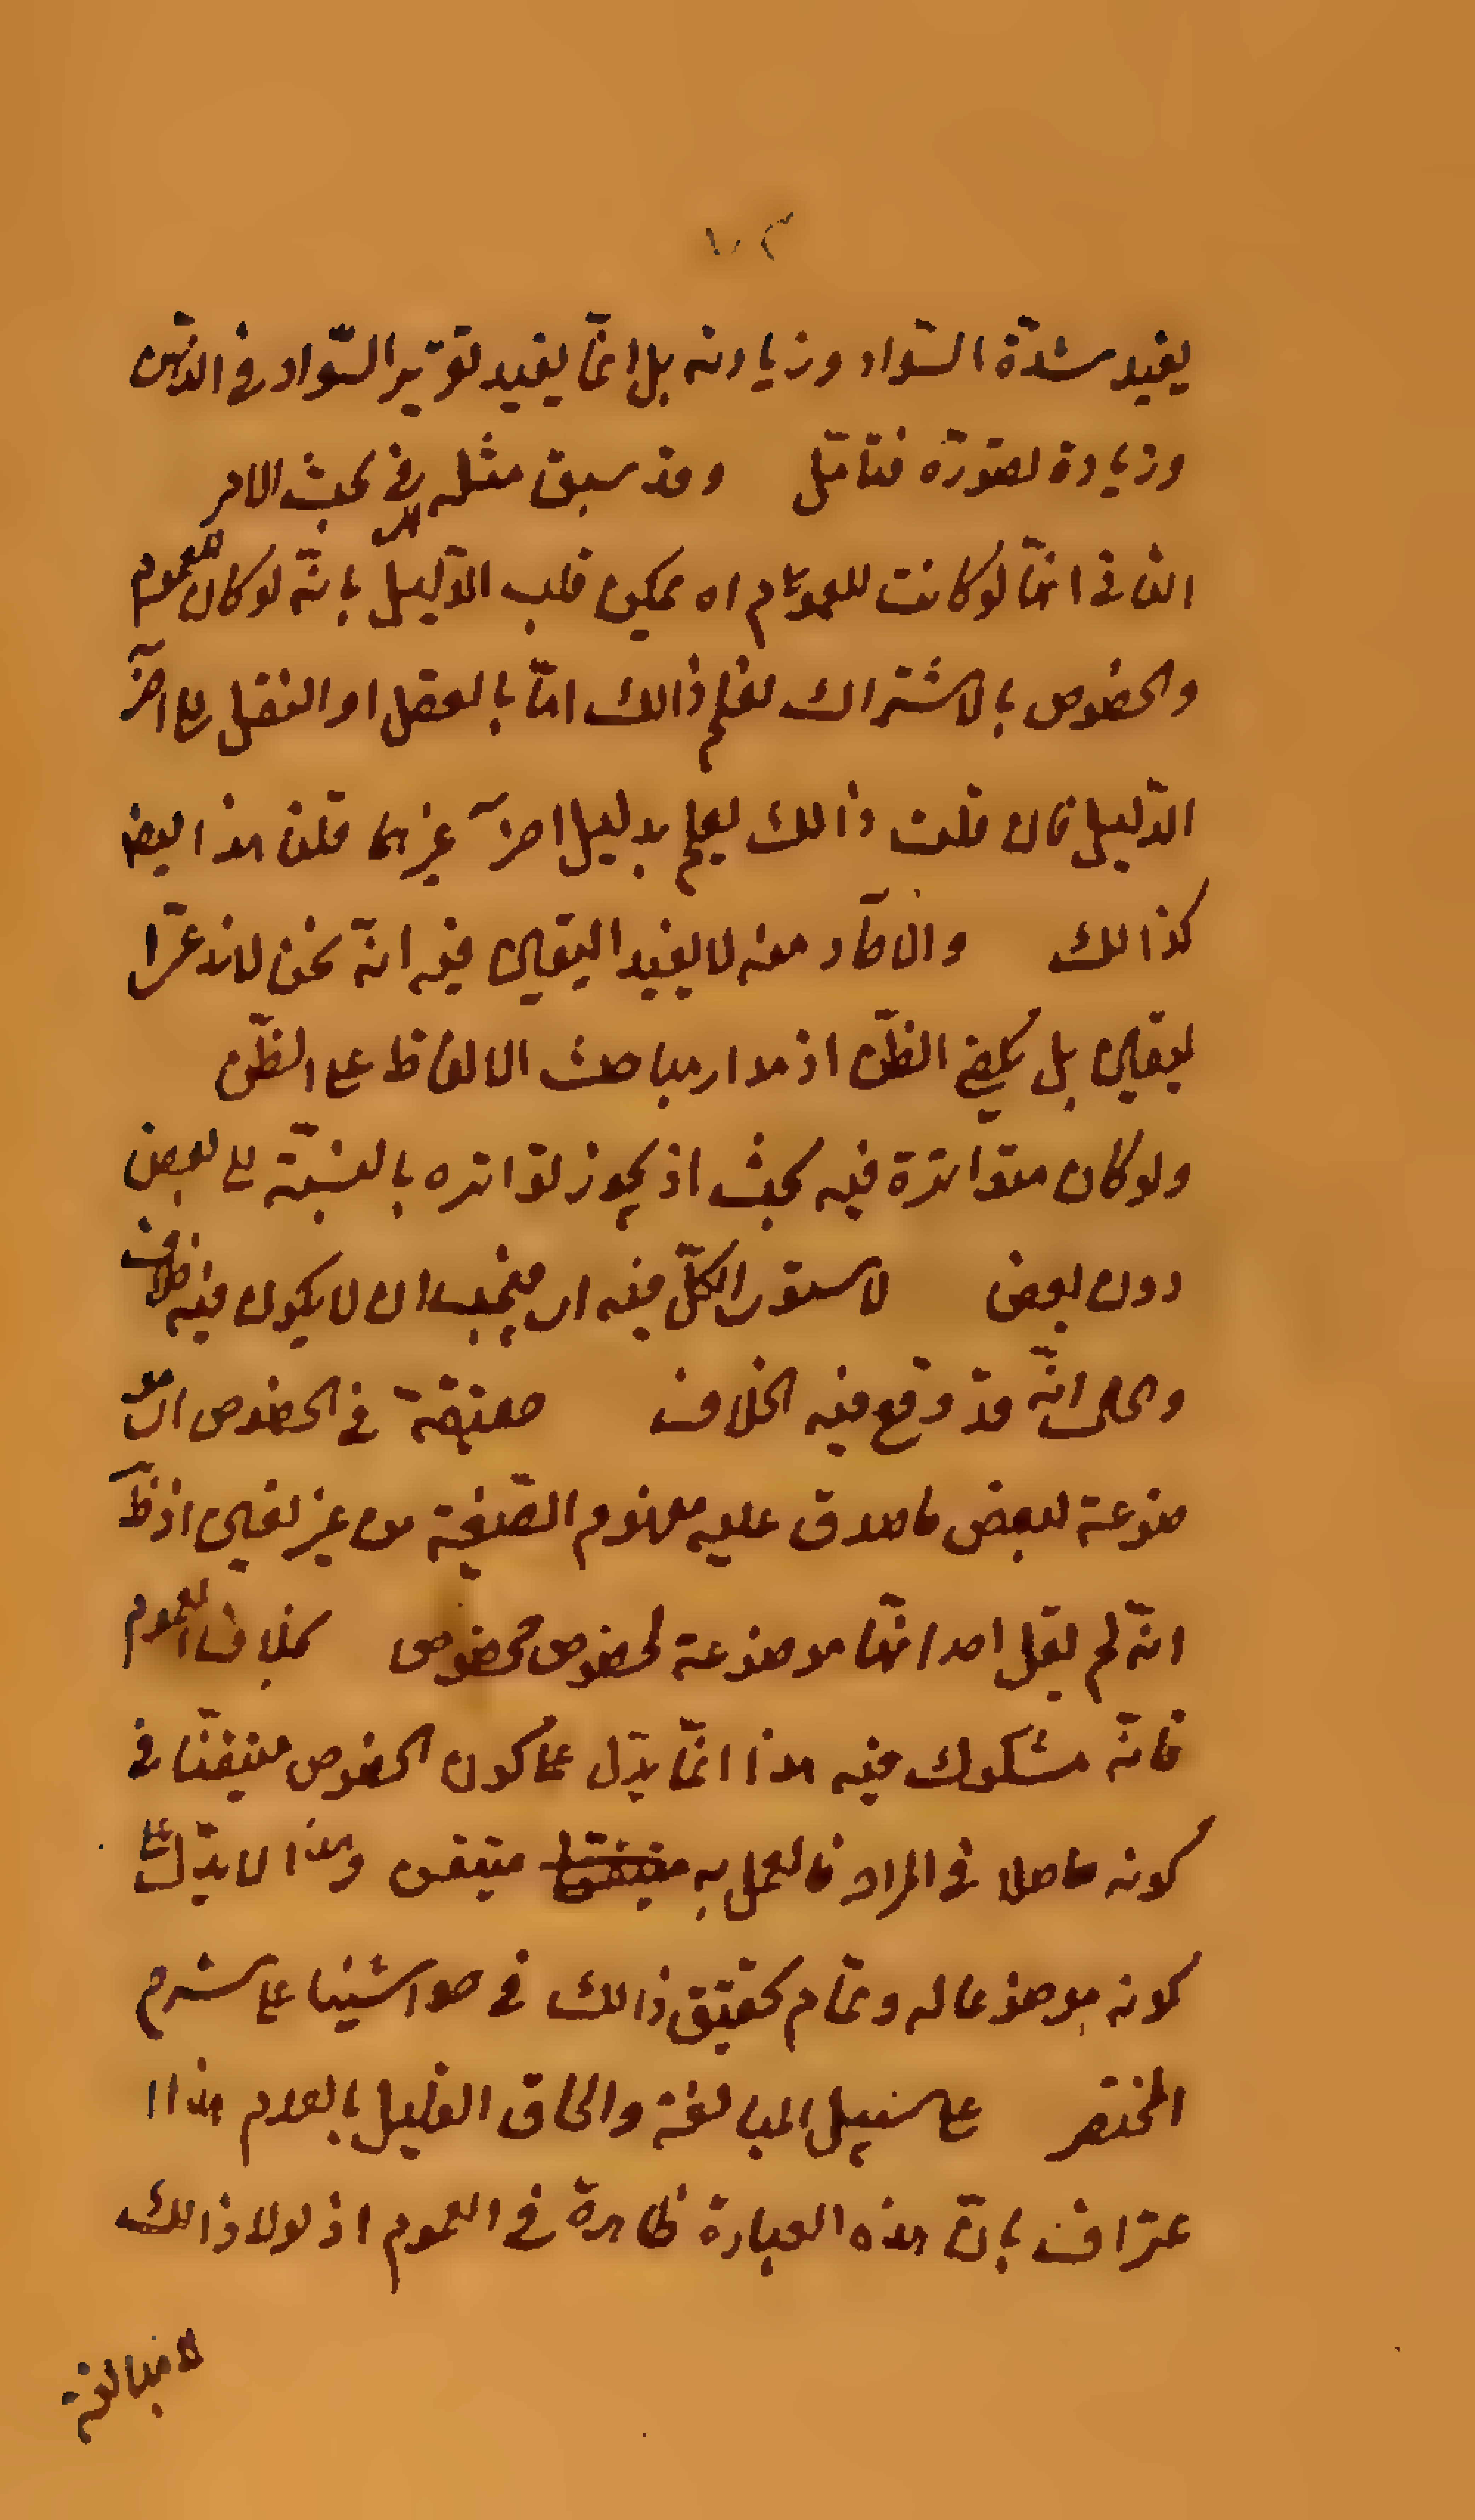 ١٠٢
يفيد شدّة السّواد وزيادته بل انّما يفيد تقرير السّواد في الذّهن
وزيادة تصوّره فتامّل وقد سبق مثله في بحث الامر
الثاني انّها لو كانت للعموم اه يمكن قلب الدّليل بانّه لو كان للعموم
والخصوص بالاشتراك لعلم ذالك امّا بالعقل او النقل الى اخر
الدّليل فان قلت ذالك يعلم بدليل اخر غيرهما قلنا هذا ايضا
كذالك والاحاد منه لا يفيد اليقين فيه انّه نحن لا ندعى
اليقين بل يكفى الظنّ اذ مدار مباحث الالفاظ على الظنّ
ولو كان متواترة فيه بحث اذ يجوز تواتره بالنسبة الى بعض
دون بعض لاستوى الكلّ فيه اى فيجب ان لا يكون فيه خلاف
والحال انّه قد وقع فيه الخلاف حقيقة في الخصوص اى مو
ضوعة لبعض ما صدق عليه مفهوم الصّيغة من غير تعيين اذ ظ
انّه لم يقل احد انّها موضوعة لخصوص مخصوص بخلاف العموم
فانّه مشكوك فيه هذا انّما يدّل على كون الخصوص متيقنّا في
كونه حاصلا في المراد فالعمل به متيقّنا متيقن وهذا لا يدّل على
كونه موضوعا له وتمام تحقيق ذالك في حواشينا على شرح
المختصر على سبيل المبالغة والحاق القليل بالعدم هذا ا
عتراف بانّ هذه العبارة ظاهرة في العموم اذ لولا ذالك
لا مبالغة